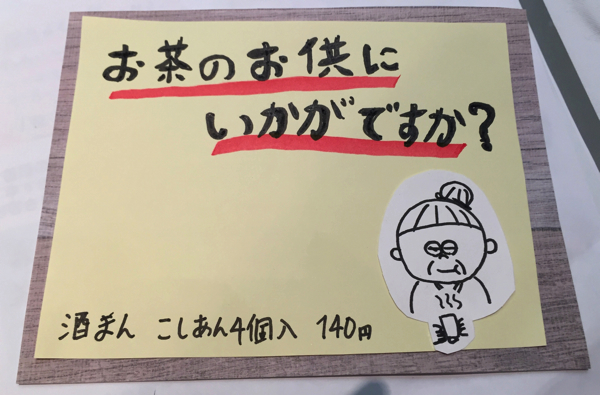 お茶のお供に
いかがですか?
酒まん こしあん4個入 140円